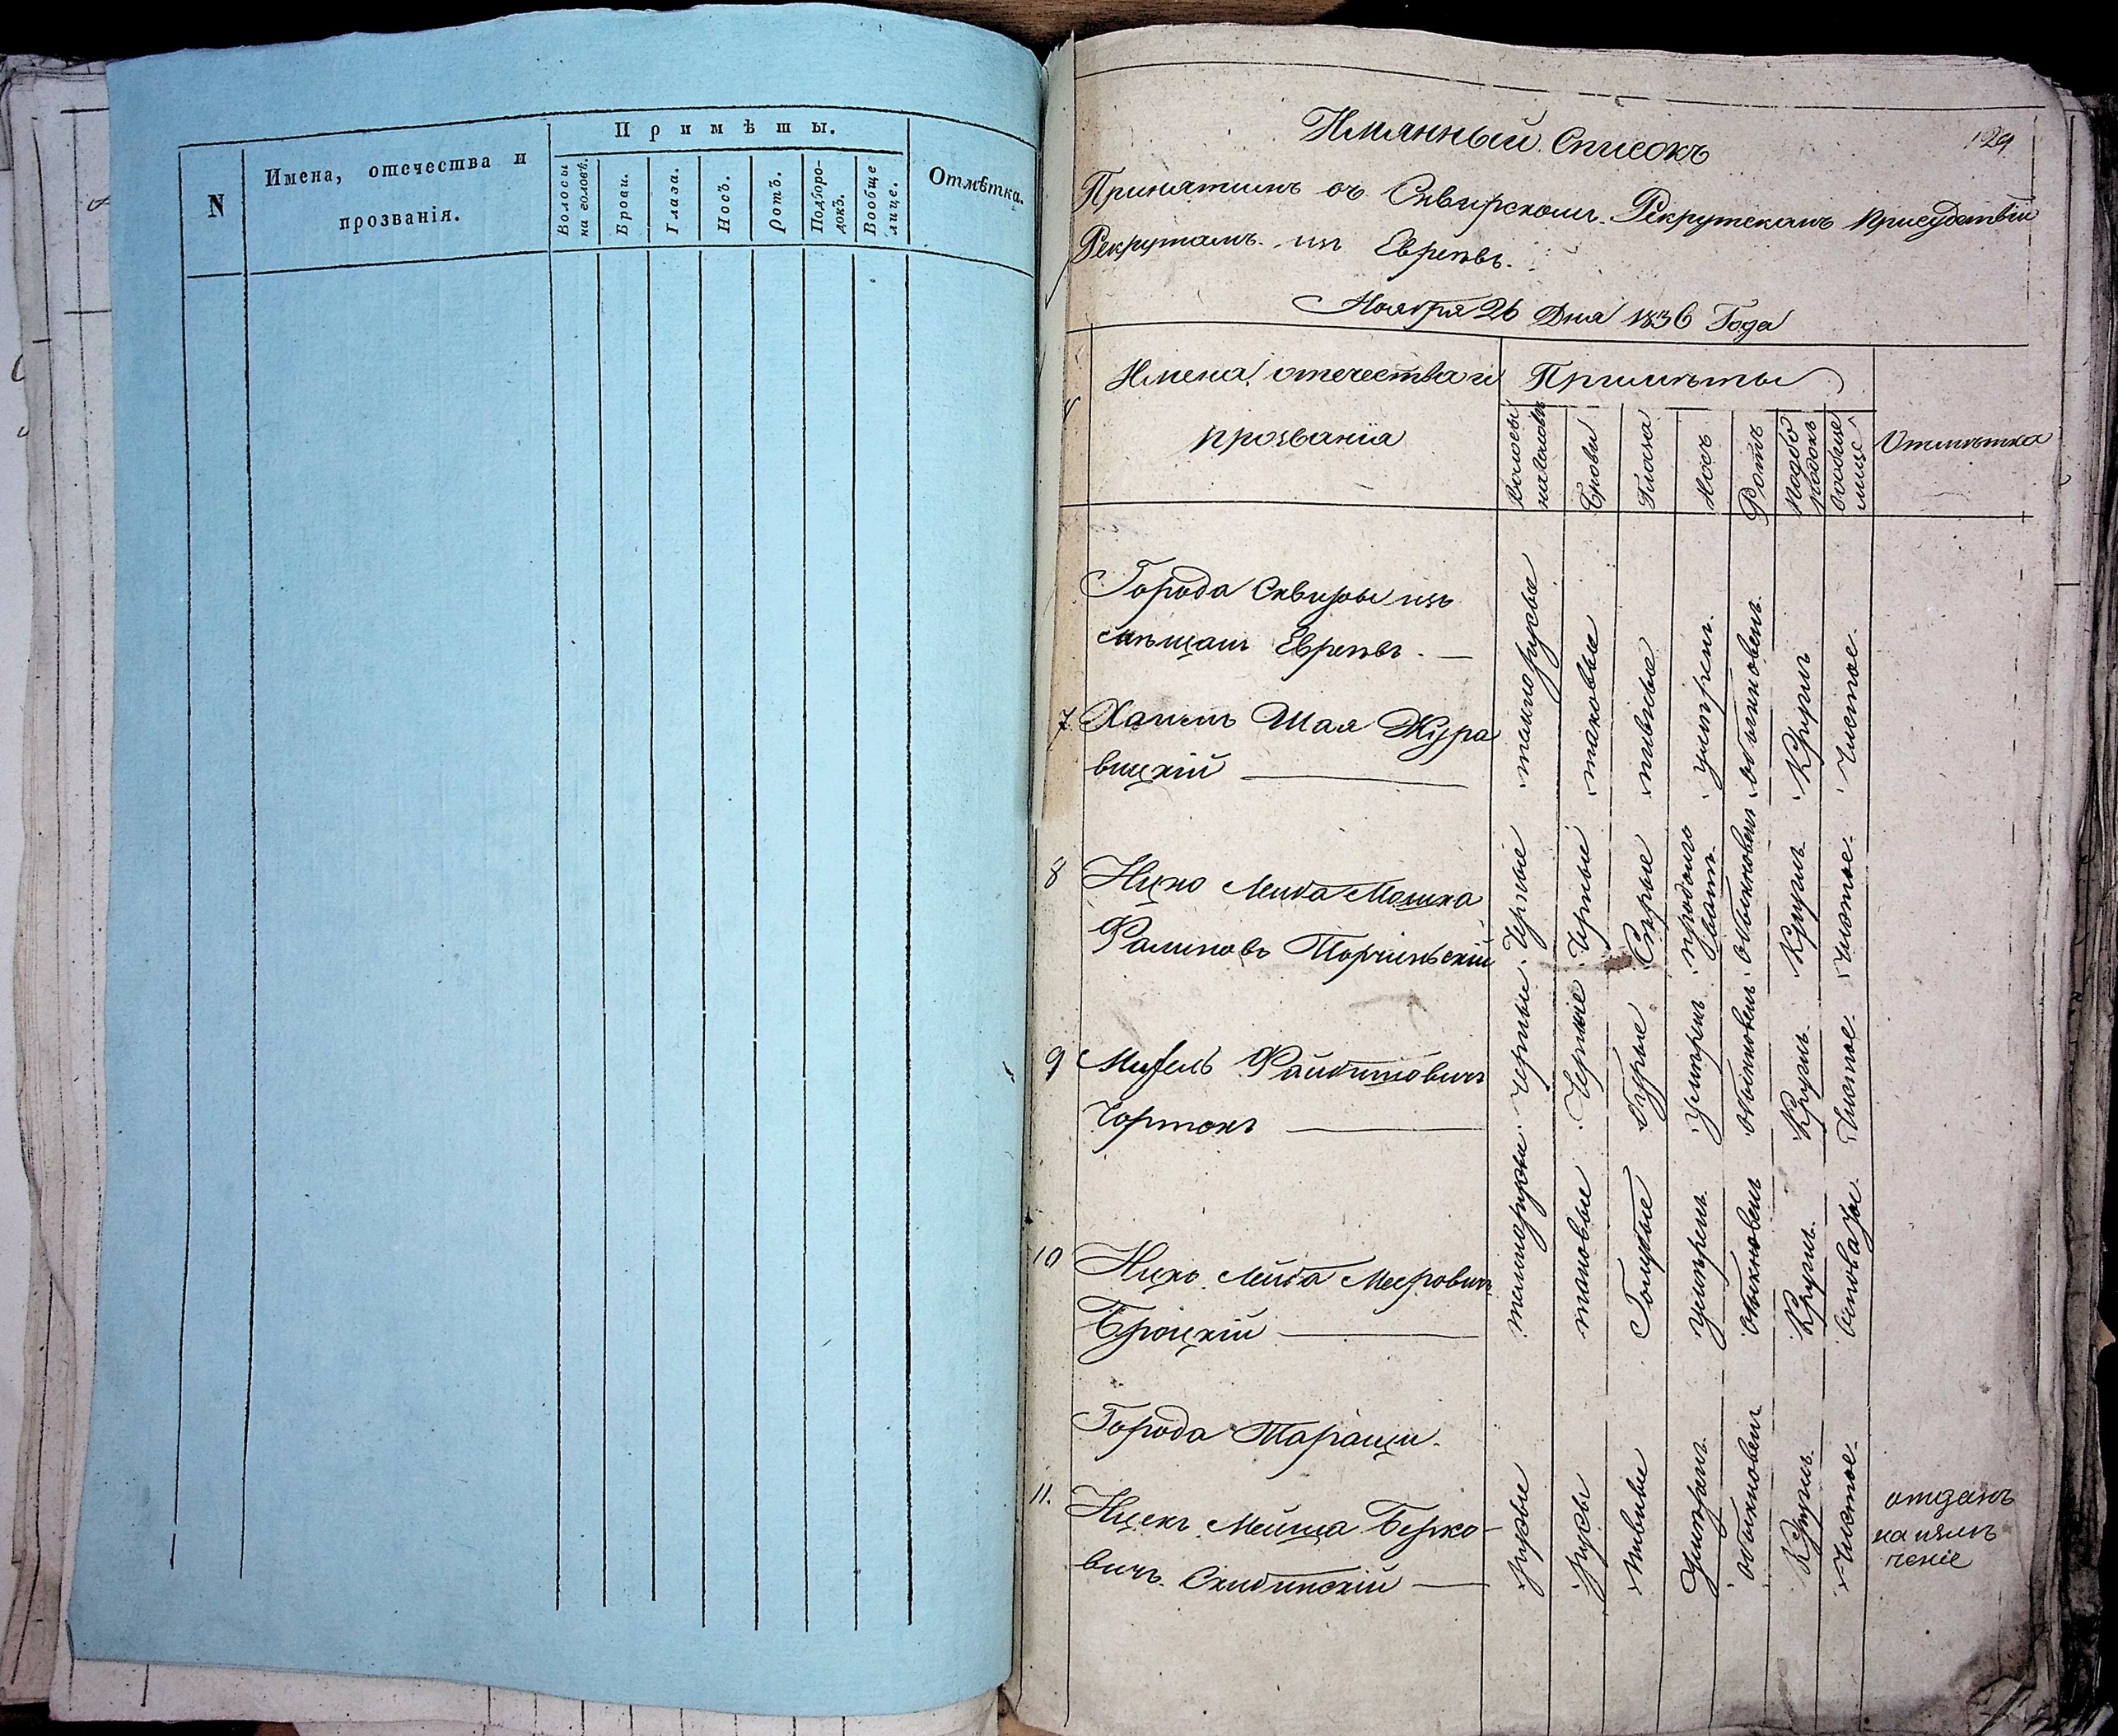 N
Имена, отечества и
прозванія.
Примѣты.
Волосы
на головѣ.
Брови.
Глаза.
Носъ.
Ротъ.
Подборо-
докъ.
Вообще
лице.
Отмѣтка.
129
Имянный Списокъ
Принятимъ въ Сквирскомъ Рекрутскомъ присудствіи
Рекрутамъ изъ Евреевъ.
Ноября 26 Дня 1836 Года
Имена, отечества и
прозванія
Примѣты
Волосы
на головѣ
Брови
Глаза
Носъ
Ротъ
подбо
родокъ
вообще
лице
Отмѣтка
Города Сквиры изъ
мѣщанъ Евреевъ.
7. Хаимъ Шая Жура
вицкій
такіе
умѣрен.
обыкновен.
Кругл.
Чистое.
8 Ицко Лейба Мошка
Торчинскій
Черные
Черные
Сѣрые
продолго
ватъ
обыкновен
Кругл.
чистое.
9
Чортокъ
черные
Черные
бурые
умѣрен
обыкновен
Кругл.
Чистое.
10 Ицко Лейба Мееровичъ
Броцкій
таковые
Голубые
умѣрен.
обыкновен
Кругл.
Города Таращи.
11. Ицекъ Мейша Берко-
вичъ Скибинскій
русые
русы
пивные
умѣрен.
обыкновен
Кругл.
Чистое.
отданъ
на излѣ
ченіе